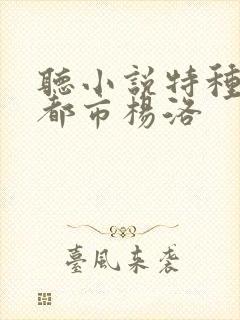 聽小說特種
都市楊洛
臺風來襲